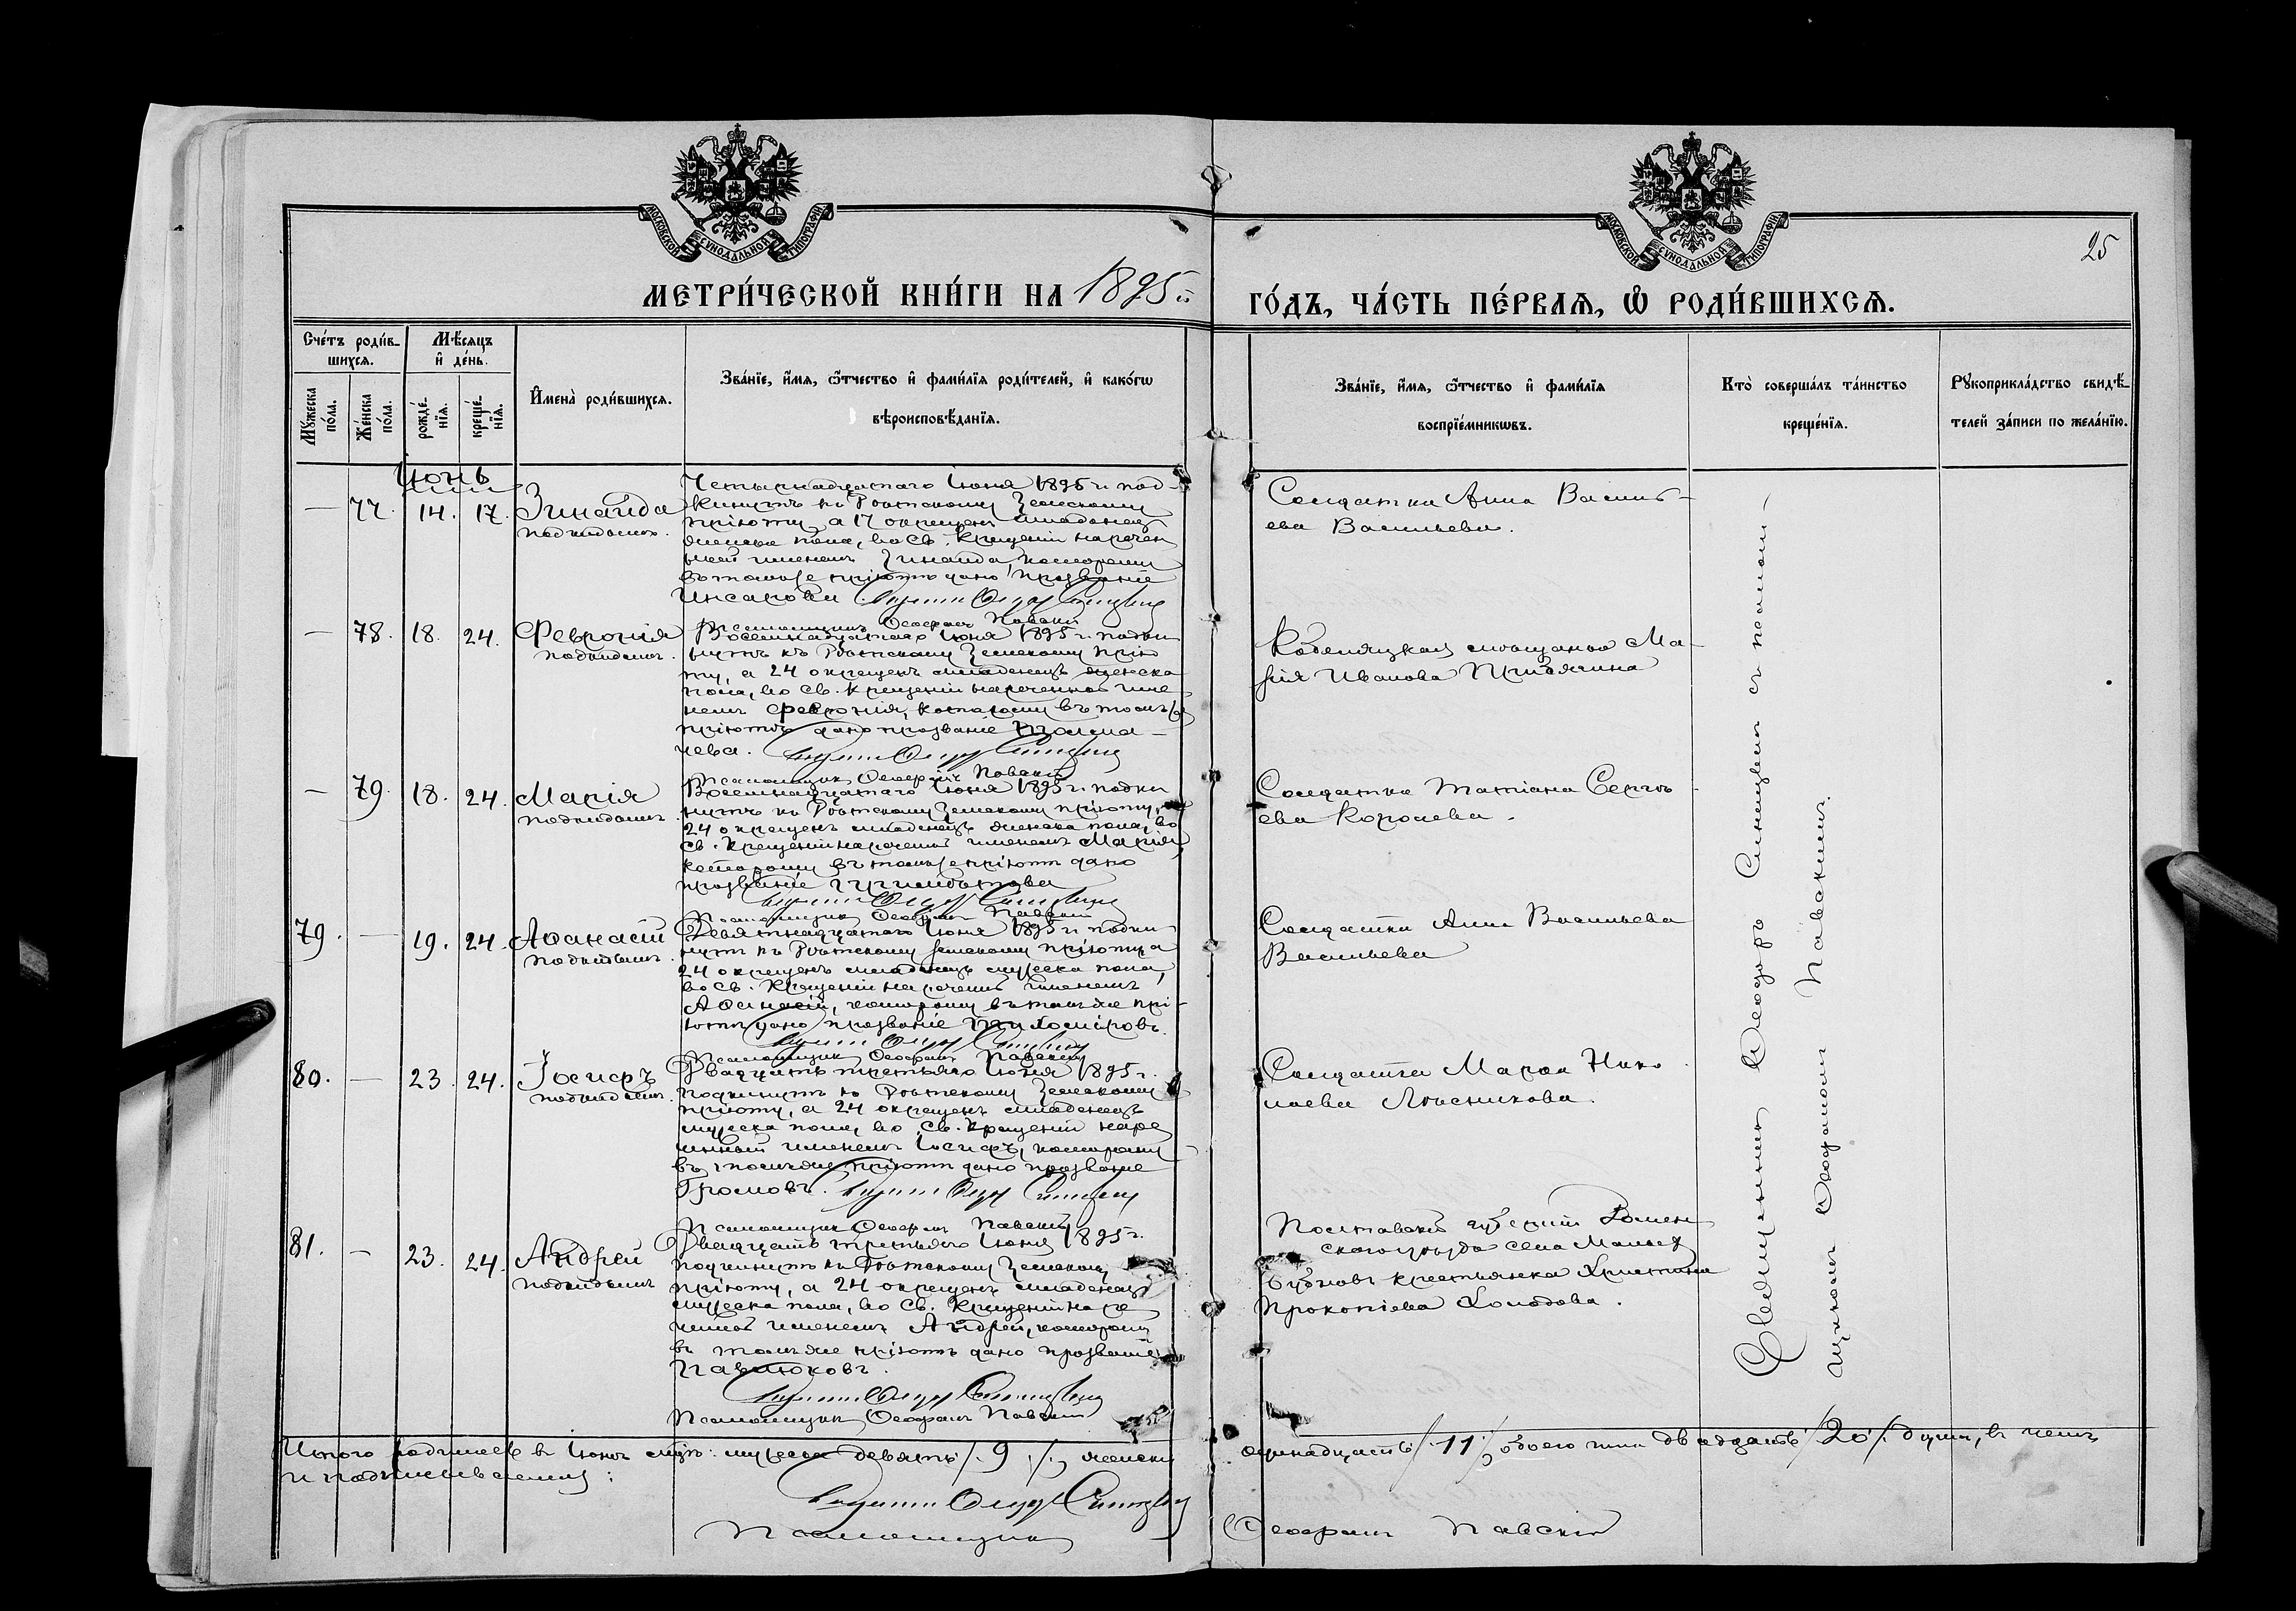 МОСКОВСКОЙ СѴНОДАЛЬНОЙ ТИПОГРАФІИ
МОСКОВСКОЙ СѴНОДАЛЬНОЙ ТИПОГРАФІИ
25
МЕТРИ́ЧЕСКОЙ КНИ́ГИ НА 1895 й
ГО́ДЪ, ЧА́СТЬ ПЕ́РВАѦ, Ѡ҆ РОДИ́ВШИХСѦ.
Сче́тъ роди́в-
шихсѧ.
Мѣ́сяцъ
и҆ де́нь.
Мꙋ́жеска
по́ла.
Же́нска
по́ла.
рожде́-
нїѧ.
креще́-
нїѧ.
И҆мена̀ роди́вшихсѧ.
Зва́нїе, и҆́мѧ, ѻ҆́тчество и҆ фами́лїѧ роди́телей, и҆ како́гѡ
вѣроисповѣ́данїѧ.
Зва́нїе, и҆́мѧ, ѻ҆́тчество и҆ фами́лїѧ
воспрїе́мникѡвъ.
Кто̀ соверша́лъ та́инство
креще́нїѧ.
Рꙋкоприкла́дство свидѣ́-
телей за́писи по жела́нїю.
Июнь
— 77. 14. 17. Зинаида
подкидышъ.
Четырнадцатаго Іюня 1895 г. под-
кинутъ къ Земскому
пріюту, а 17 окрещенъ младенецъ
женска пола, во Св. Крещеніи наречен
ный именемъ Зинаида, которому
въ томъ же пріютѣ дано прозваніе
Инсарова
Псаломщикъ Ѳеофанъ Павскій
Солдатка Анна Василь-
ева Васильева.
— 78. 18. 24. Феврония
подкидышъ.
Восемнадцатаго Іюня 1895 г. подки
нутъ къ Земскому прію
ту, а 24 окрещенъ младенецъ женска
пола, во Св. Крещеніи нареченный име
немъ Феврония, которому въ томъ же
пріютѣ дано прозваніе Толма-
чева.
Псаломщикъ Ѳеофанъ Павскій
Кобеляцкая мѣщанка Ма-
рія Иванова
— 79. 18. 24. Марія
подкидышъ.
Восемнадцатаго Іюня 1895 г. подки
нутъ къ Земскому пріюту, а
24 окрещенъ младенецъ женска пола, во
Св. Крещеніи нареченный именемъ Марія,
которому въ томъ же пріютѣ дано
прозваніе
Псаломщикъ Ѳеофанъ Павскій
Солдатка Татіана Сергѣ-
ева Королева.
79. — 19. 24. Аѳанасій
подкидышъ.
Девятнадцатаго Іюня 1895 г. подки
нутъ къ Земскому пріюту, а
24 окрещенъ младенецъ мужеска пола,
во Св. Крещеніи нареченный именемъ
Аѳанасій, которому въ томъ же прі-
ютѣ дано прозваніе Тихоміровъ.
Псаломщикъ Ѳеофанъ Павскій
Солдатка Анна Васильева
Васильева
80. — 23. 24. Іосифъ
подкидышъ.
Двадцать третьяго Іюня 1895 г.
подкинутъ къ Земскому
пріюту, а 24 окрещенъ младенецъ
мужеска пола, во Св. Крещеніи наре
ченный именемъ Іосифъ, которому
въ томъ же пріютѣ дано прозваніе
Громовъ.
Псаломщикъ Ѳеофанъ Павскій
Солдатка Марѳа Нико
лаева Лѣсникова.
81. — 23. 24. Андрей
подкидышъ
Двадцать третьяго Іюня 1895 г.
подкинутъ къ Земскому
пріюту, а 24 окрещенъ младенецъ
мужеска пола, во Св. Крещеніи наре
ченный именемъ Андрей, которому
въ томъ же пріютѣ дано прозваніе
Павлюковъ.
Псаломщикъ Ѳеофанъ Павскій
Полтавской губерніи Ромен
скаго уѣзда села Малыхъ
Бубновъ крестьянка Христина
Прокопіева Холодова.
Священникъ Ѳеодоръ съ псалом-
щикомъ Ѳеофаномъ Павскимъ.
Итого родилось въ Іюнѣ муж: мужеска девять /.9./, женска одинадцать /.11./, обоего пола двадцать /20/. душъ, въ чемъ
и подписываемся:
Псаломщикъ Ѳеофанъ Павскій